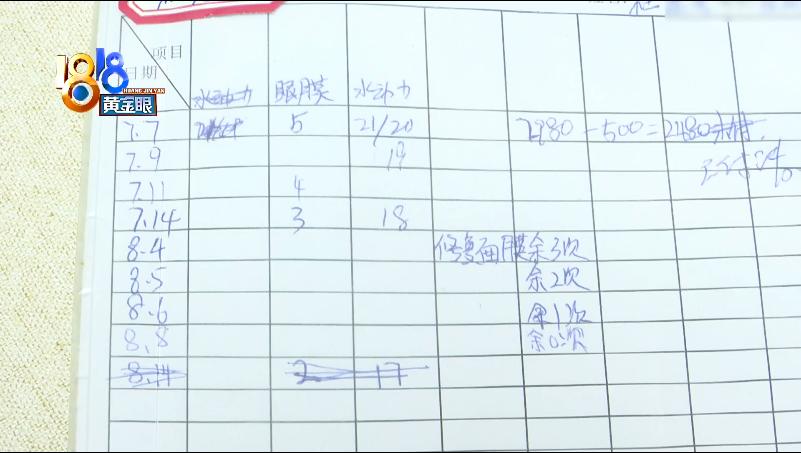 1818
HUANG JIN YAN
黄金眼
项目
日期
水动力 眼膜 水动力
7.7 5 21/20 2980-500=2480未付
7.9 19
7.11 4
7.14 3 18
8.4 修复面膜余3次
8.5 余2次
8.6 余1次
8.8 余0次
8.11 2 17